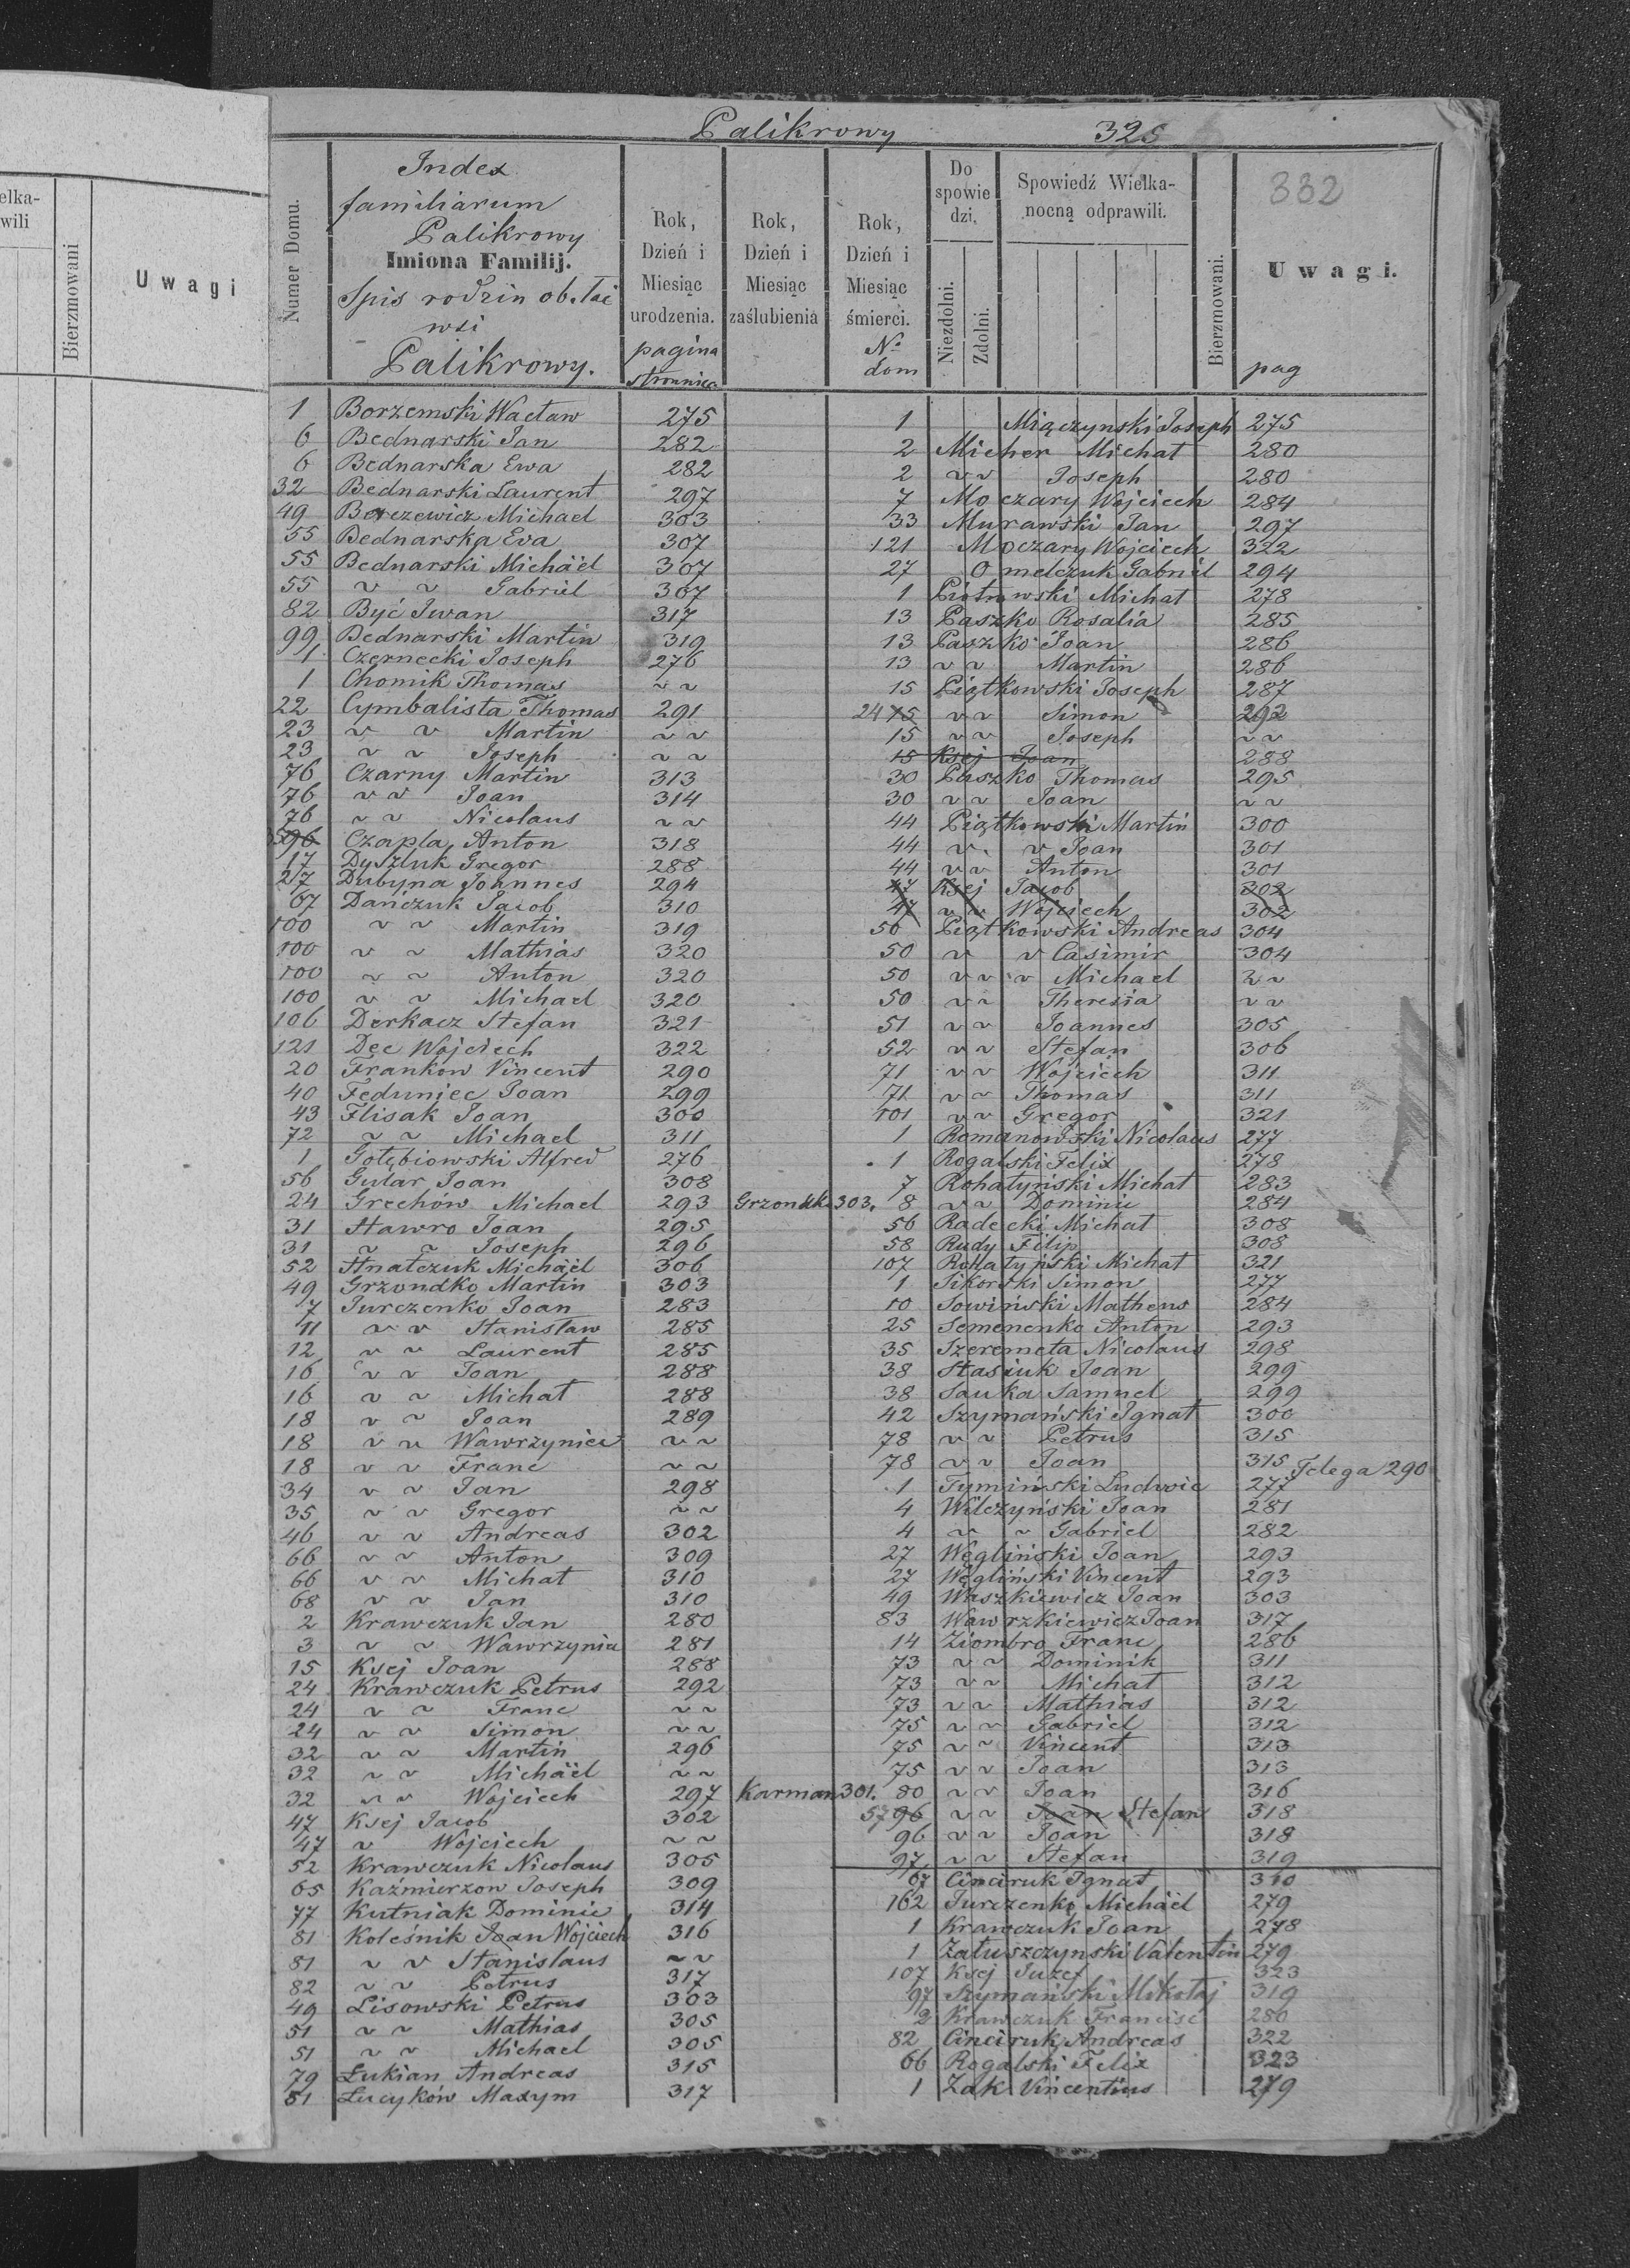 elka-
wili
Bierzmowani
Uwagi
Palikrowy 325
Numer Domu.
Index
familiarum
Palikrowy
Imiona Familij.
Spis rodzin ob. łać
wsi
Palikrowy.
Rok,
Dzień i
Miesiąc
urodzenia.
pagina
stronnica
Rok,
Dzień i
Miesiąc
zaślubienia
Rok,
Dzień i
Miesiąc
śmierci.
No
dom
Do
spowie
dzi.
Niezdolni.
Zdolni.
Spowiedź Wielka-
nocną odprawili.
Bierzmowani.
332
Uwagi.
pag
1 Borzemski Wacław 275
6 Bednarski Jan 282
6 Bednarska Ewa 282
32 Bednarski Laurent 297
49 Michael 303
55 Bednarska Eva 307
55 Bednarski Michäël 307
55 ~ ~ Gabriel 307
82 Być Iwan 317
99 Bednarski Martin 319
1 Czernecki Joseph 276
1 Chomik Thomas ~ ~
22 Cymbalista Thomas 291
23 ~ ~ Martin ~ ~
23 ~ ~ Joseph ~ ~
76 Czarny Martin 313
76 ~ ~ Joan 314
76 ~ ~ Nicolaus ~ ~
Czapla Anton 318
17 Dyszluk Gregor 288
27 Dubyna Joannes 294
67 Dańczuk Jacob 310
100 ~ ~ Martin 319
100 ~ ~ Mathias 320
100 ~ ~ Anton 320
100 ~ ~ Michael 320
106 Derkacz Stefan 321
121 Dec Wojciech 322
20 Franków Vincent 290
40 Feduniec Joan 299
43 Flisak Joan 300
72 ~ ~ Michael 311
1 Gołębiowski Alfred 276
56 Gular Joan 308
24 Grechów Michael 293 Grzondk. 303.
31 Hawro Joan 295
31 ~ ~ Joseph 296
52 Hnatczuk Michäel 306
49 Grzondko Martin 303
7 Jurczenko Joan 283
11 ~ ~ Stanislaw 285
12 ~ ~ Laurent 285
16 ~ ~ Joan 288
16 ~ ~ Michał 288
18 ~ ~ Joan 289
18 ~ ~ Wawrzyniec ~ ~
18 ~ ~ Franc ~ ~
34 ~ ~ Jan 298
35 ~ ~ Gregor ~ ~
46 ~ ~ Andreas 302
66 ~ ~ Anton 309
66 ~ ~ Michał 310
68 ~ ~ Jan 310
2 Krawczuk Jan 280
3 ~ ~ Wawrzynic 281
15 Ksej Joan 288
24 Krawczuk Petrus 292
24 ~ ~ Franc ~ ~
24 ~ ~ Simon ~ ~
32 ~ ~ Martin 296
32 ~ ~ Michäël ~ ~
32 ~ ~ Wojciech 297 Karman 301.
47 Ksej Jacob 302
47 ~ Wojciech ~ ~
52 Krawczuk Nicolaus 305
65 Kaźmierzow Joseph 309
77 Kutniak Dominic 314
81 Koleśnik Joan Wojciech 316
81 ~ ~ Stanislaus ~ ~
82 ~ ~ Petrus 317
49 Lisowski Petrus 303
51 ~ ~ Mathias 305
51 ~ ~ Michael 305
79 Łukian Andreas 315
81 Łucyków Maxym 317
1 Miączynski Joseph 275
2 Micher Michał 280
2 ~ ~ Joseph 280
7 Moczary Wojciech 284
33 Murawski Jan 297
121 Moczary Wojciech 322
27 Omelczuk Gabriel 294
1 Piotrowski Michał 278
13 Paszko Rosalia 285
13 Paszko Joan 286
13 ~ ~ Martin 286
15 Piątkowski Joseph 287
24 15 ~ ~ Simon 292
15 ~ ~ Joseph ~ ~
15 Ksej Joan 288
30 Paszko Thomas 295
30 ~ ~ Joan ~ ~
44 Piątkowski Martin 300
44 ~ ~ Joan 301
44 ~ ~ Anton 301
47 Ksej Jacob 302
47 ~ ~ Wojciech 302
50 Piątkowski Andreas 304
50 ~ ~ Casimir 304
50 ~ ~ ~ Michael ~ ~
50 ~ ~ Theresia ~ ~
51 ~ ~ Joannes 305
52 ~ ~ Stefan 306
71 ~ ~ Wojciech 311
71 ~ ~ Thomas 311
101 ~ ~ Gregor 321
1 Romanowski Nicolaus 277
1 Rogalski Felix 278
7 Rohatyński Michał 283
8 ~ ~ Dominic 284
56 Radecki Michał 308
58 Rudy Filip 308
107 Rohatyński Michał 321
1 Sikorski Simon 277
10 Sowiński Matheus 284
25 Semenenko Anton 293
35 Szeremeta Nicolaus 298
38 Stasiuk Joan 299
38 Sauka Samuel 299
42 Szymański Ignat 300
78 ~ ~ Petrus 315
78 ~ ~ Joan 315 Telega 290
1 Tymiński Ludwic 277
4 Wilczyński Joan 281
4 ~ ~ Gabriel 282
27 Węgliński Joan 293
27 Węgliński Vincent 293
49 Waszkiewicz Joan 303
83 Wawrzkiewicz Joan 317
14 Ziombro Franc 286
73 ~ ~ Dominik 311
73 ~ ~ Michał 312
73 ~ ~ Mathias 312
75 ~ ~ Gabriel 312
75 ~ ~ Vincent 313
75 ~ ~ Joan 313
80 ~ ~ Joan 316
57 96 ~ ~ Joan Stefan 318
96 ~ ~ Joan 318
97 ~ ~ Stefan 319
67 Cinciruk Ignat 310
162 Jurczenko Michäël 279
1 Krawczuk Joan 278
1 Załuszczynski Valentin 279
107 Ksej Juzef 323
97 Szymański Mikołaj 319
2 Krawczuk Francisc 280
82 Cinciruk Andreas 322
66 Rogalski Felix 323
1 Zak Vincentius 279